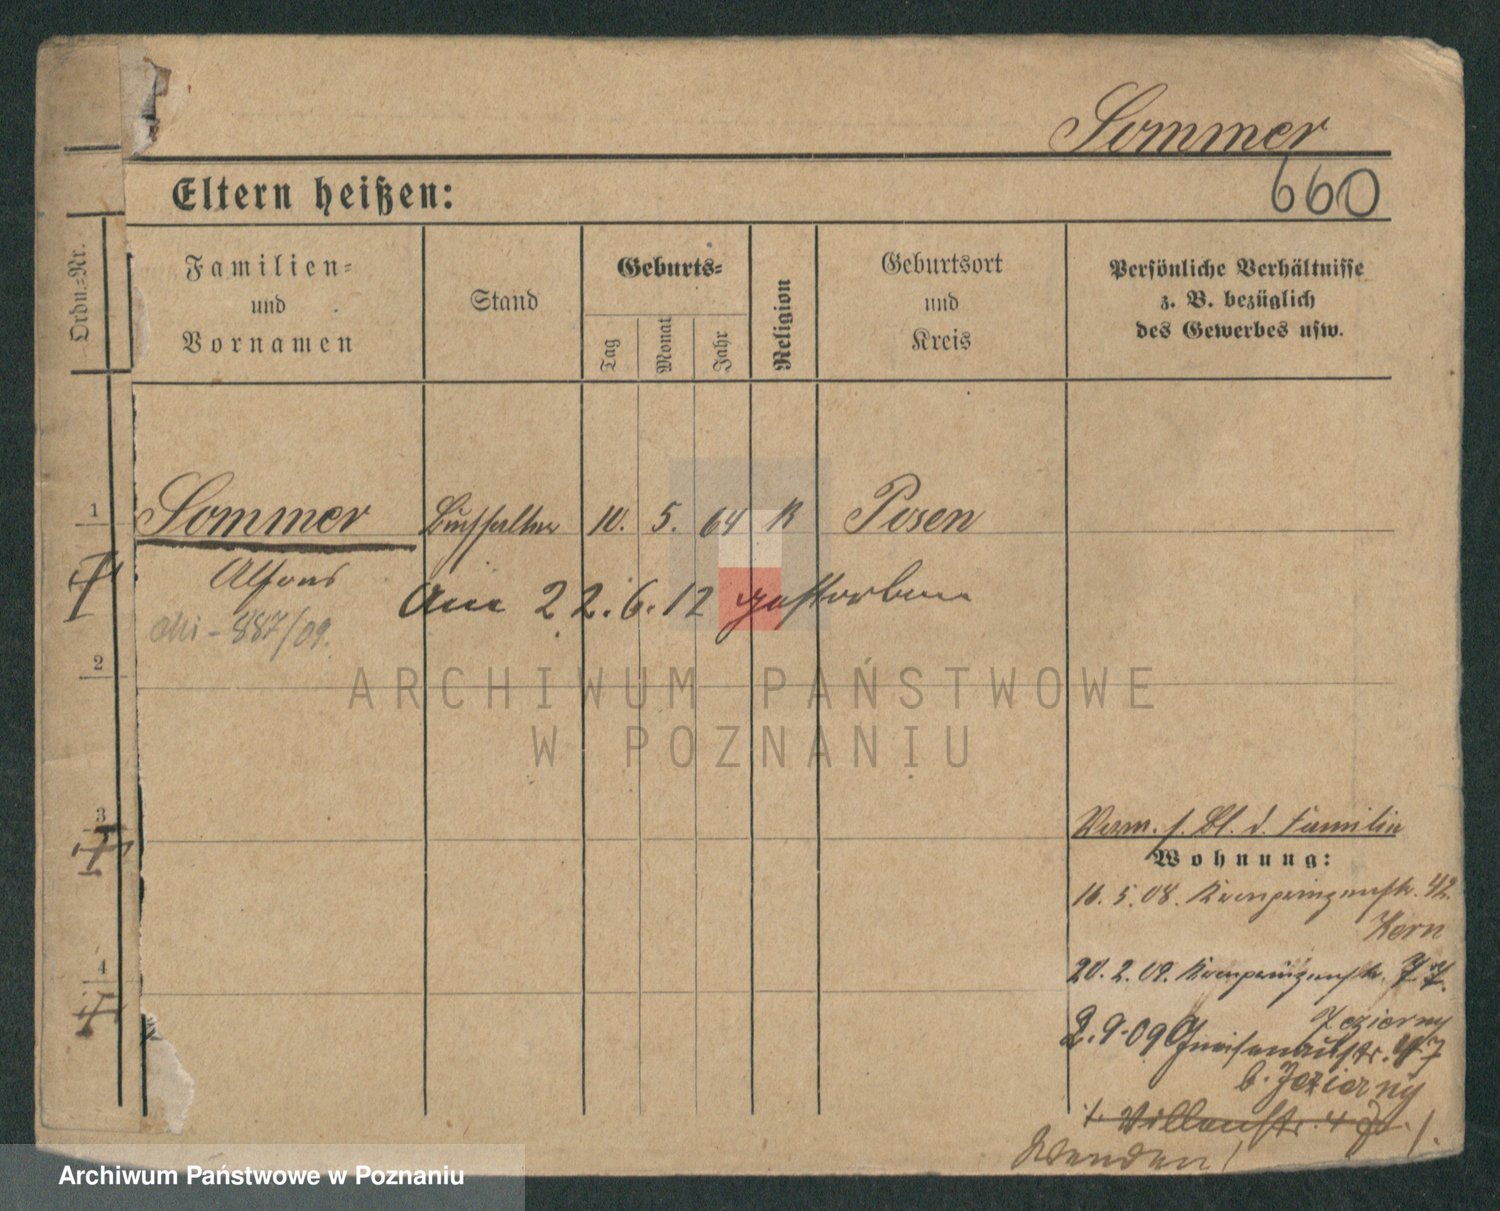 Sommer
660
Eltern heißen:
Ordn.-Nr.
Familien-
und
Vornamen
Stand
Geburts-
Tag
Monat
Jahr
Religion
Geburtsort
und
Kreis
Persönliche Verhältnisse
z. B. bezüglich
des Gewerbes usw.
1
Sommer Buchhalter 10. 5. 64 K Posen
Alfons
Am 22.6.12 gestorben
887/09.
2
ARCHIWUM PAŃSTWOWE
W POZNANIU
3
Verm. s. Bl. d. Familie
Wohnung:
16. 5. 08. Kronprinzenstr. 42.
Kern
4
20. 2. 09. Kronprinzenstr. 77.
Jezierny
2.9.09 Gneisenaustr. 7
b. Jezierny
Wenden!
Archiwum Państwowe w Poznaniu